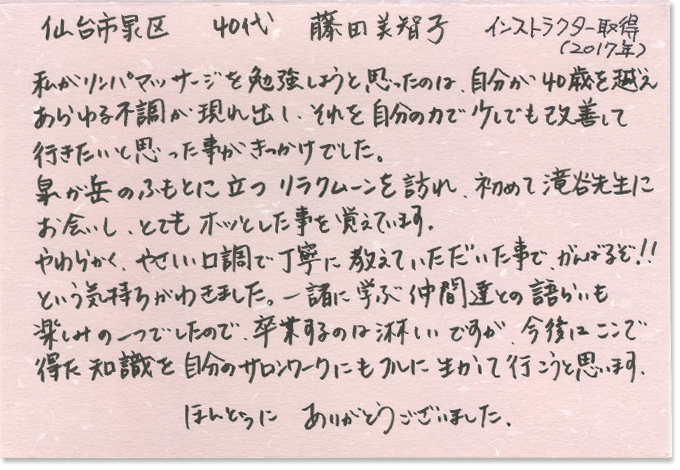 仙台市泉区 40代 藤田美智子 インストラクター取得
(2017年)
私がリンパマッサージを勉強しようと思ったのは、自分が40歳を越え
あらゆる不調が現れ出し、それを自分の力で少しでも改善して
行きたいと思った事がきっかけでした。
泉が岳のふもとに立つリラクムーンを訪れ、初めて滝谷先生に
お会いし、とてもホッとした事を覚えています。
やわらかく、やさしい口調で丁寧に教えていただいた事で、がんばるぞ!!
という気持ちがわきました。一諸に学ぶ仲間達との語らいも
楽しみの一つでしたので、卒業するのは淋しいですが、今後はここで
得た知識を自分のサロンワークにもフルに生かして行こうと思います。
ほんとうに ありがとうございました。